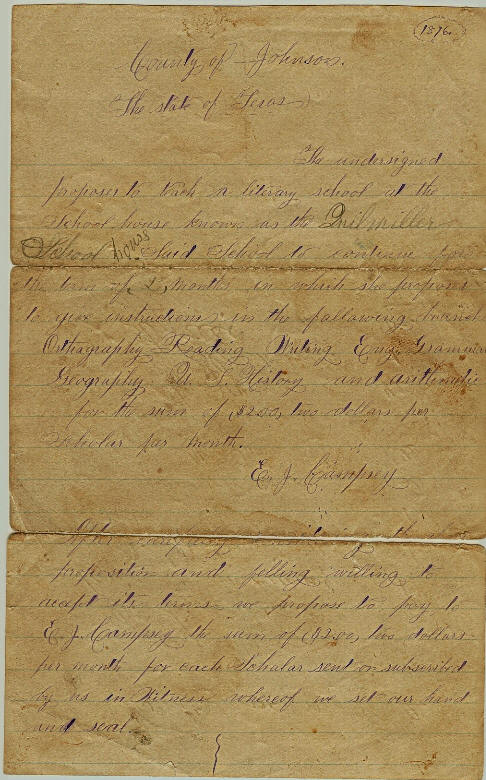 1876.
County of Johnson.
The state of Texas
The undersigned
proposes to teach a literary school at the
School house known as the
School house Said School to continue for
the term of months in which she proposes
to give instructions in the following branch
Orthography Reading Writing Eng. Grammar
Geography U. S. History and arithmetic
for the sum of $2.00, two dollars per
Scholar per month.
E. J. Campsey
After
proposition and felling willing to
accept its terms we propose to pay to
E. J. Campsey the sum of $2.00, two dollars
per month for each Scholar sent or subscribed
by us in Witness whereof we set our hand
and seal.